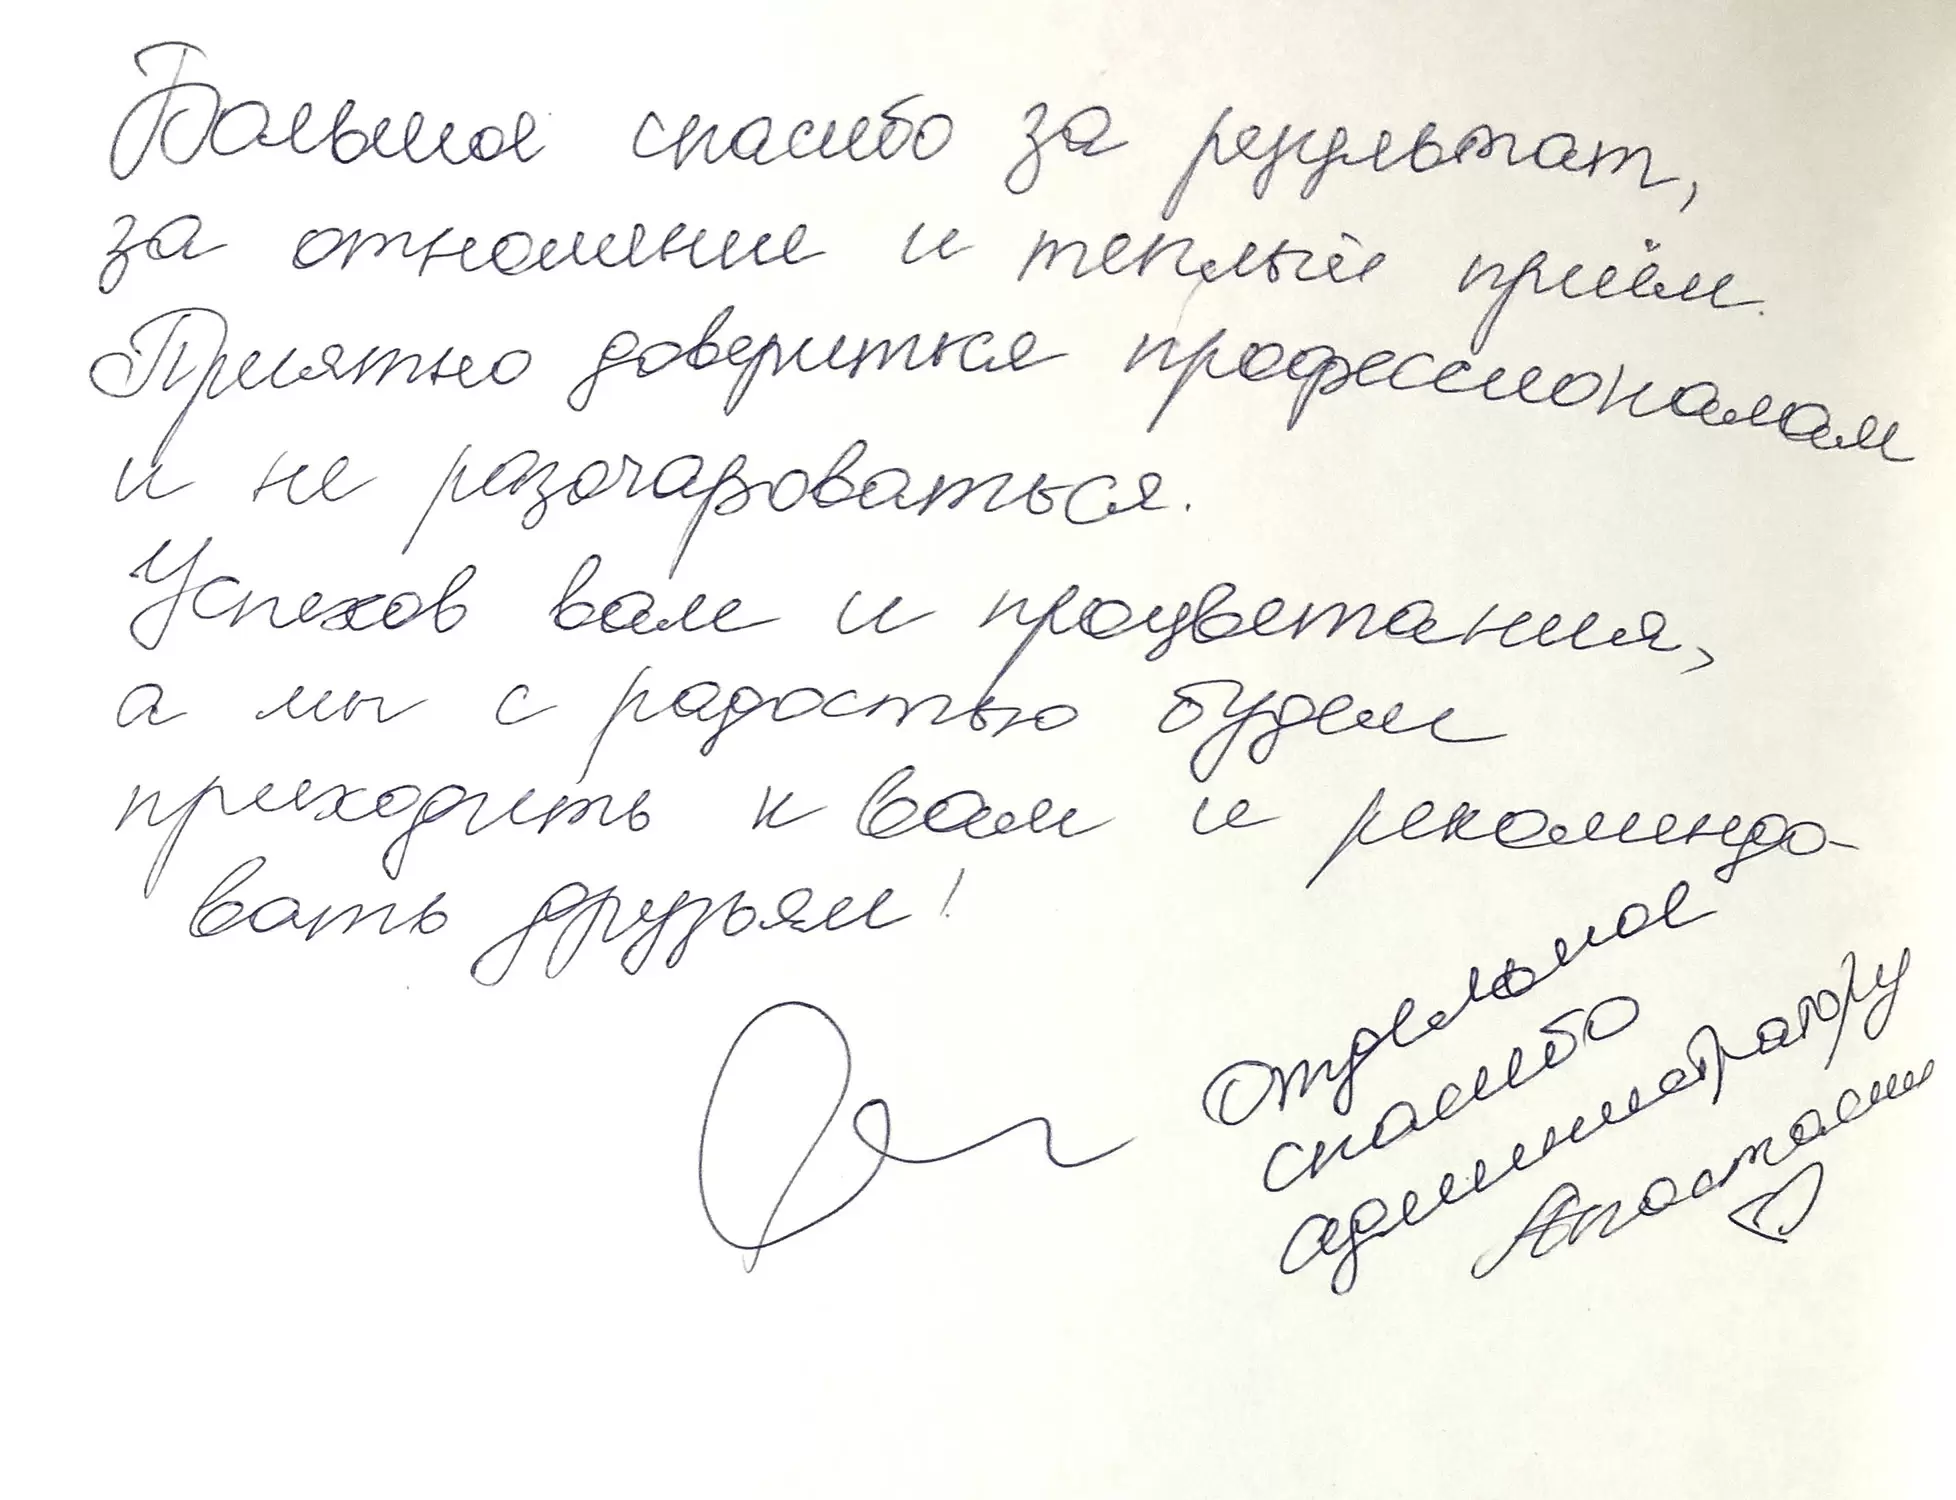 Большое спасибо за результат,
за отношение и теплый приём.
Приятно довериться профессионалам
и не разочароваться.
Успехов вам и процветания,
а мы с радостью будем
приходить к вам и рекомендо-
вать друзьям!
Отдельное
спасибо
администратору
Анастасии